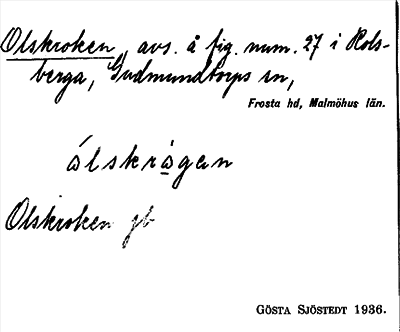 Olskroken, avs. å fig. num. 27 i Rols-
berga, Gudmundtorps sn,
Frosta hd, Malmöhus län.
ólskrågan
Olskroken jb
GÖSTA SJÖSTEDT 1936.